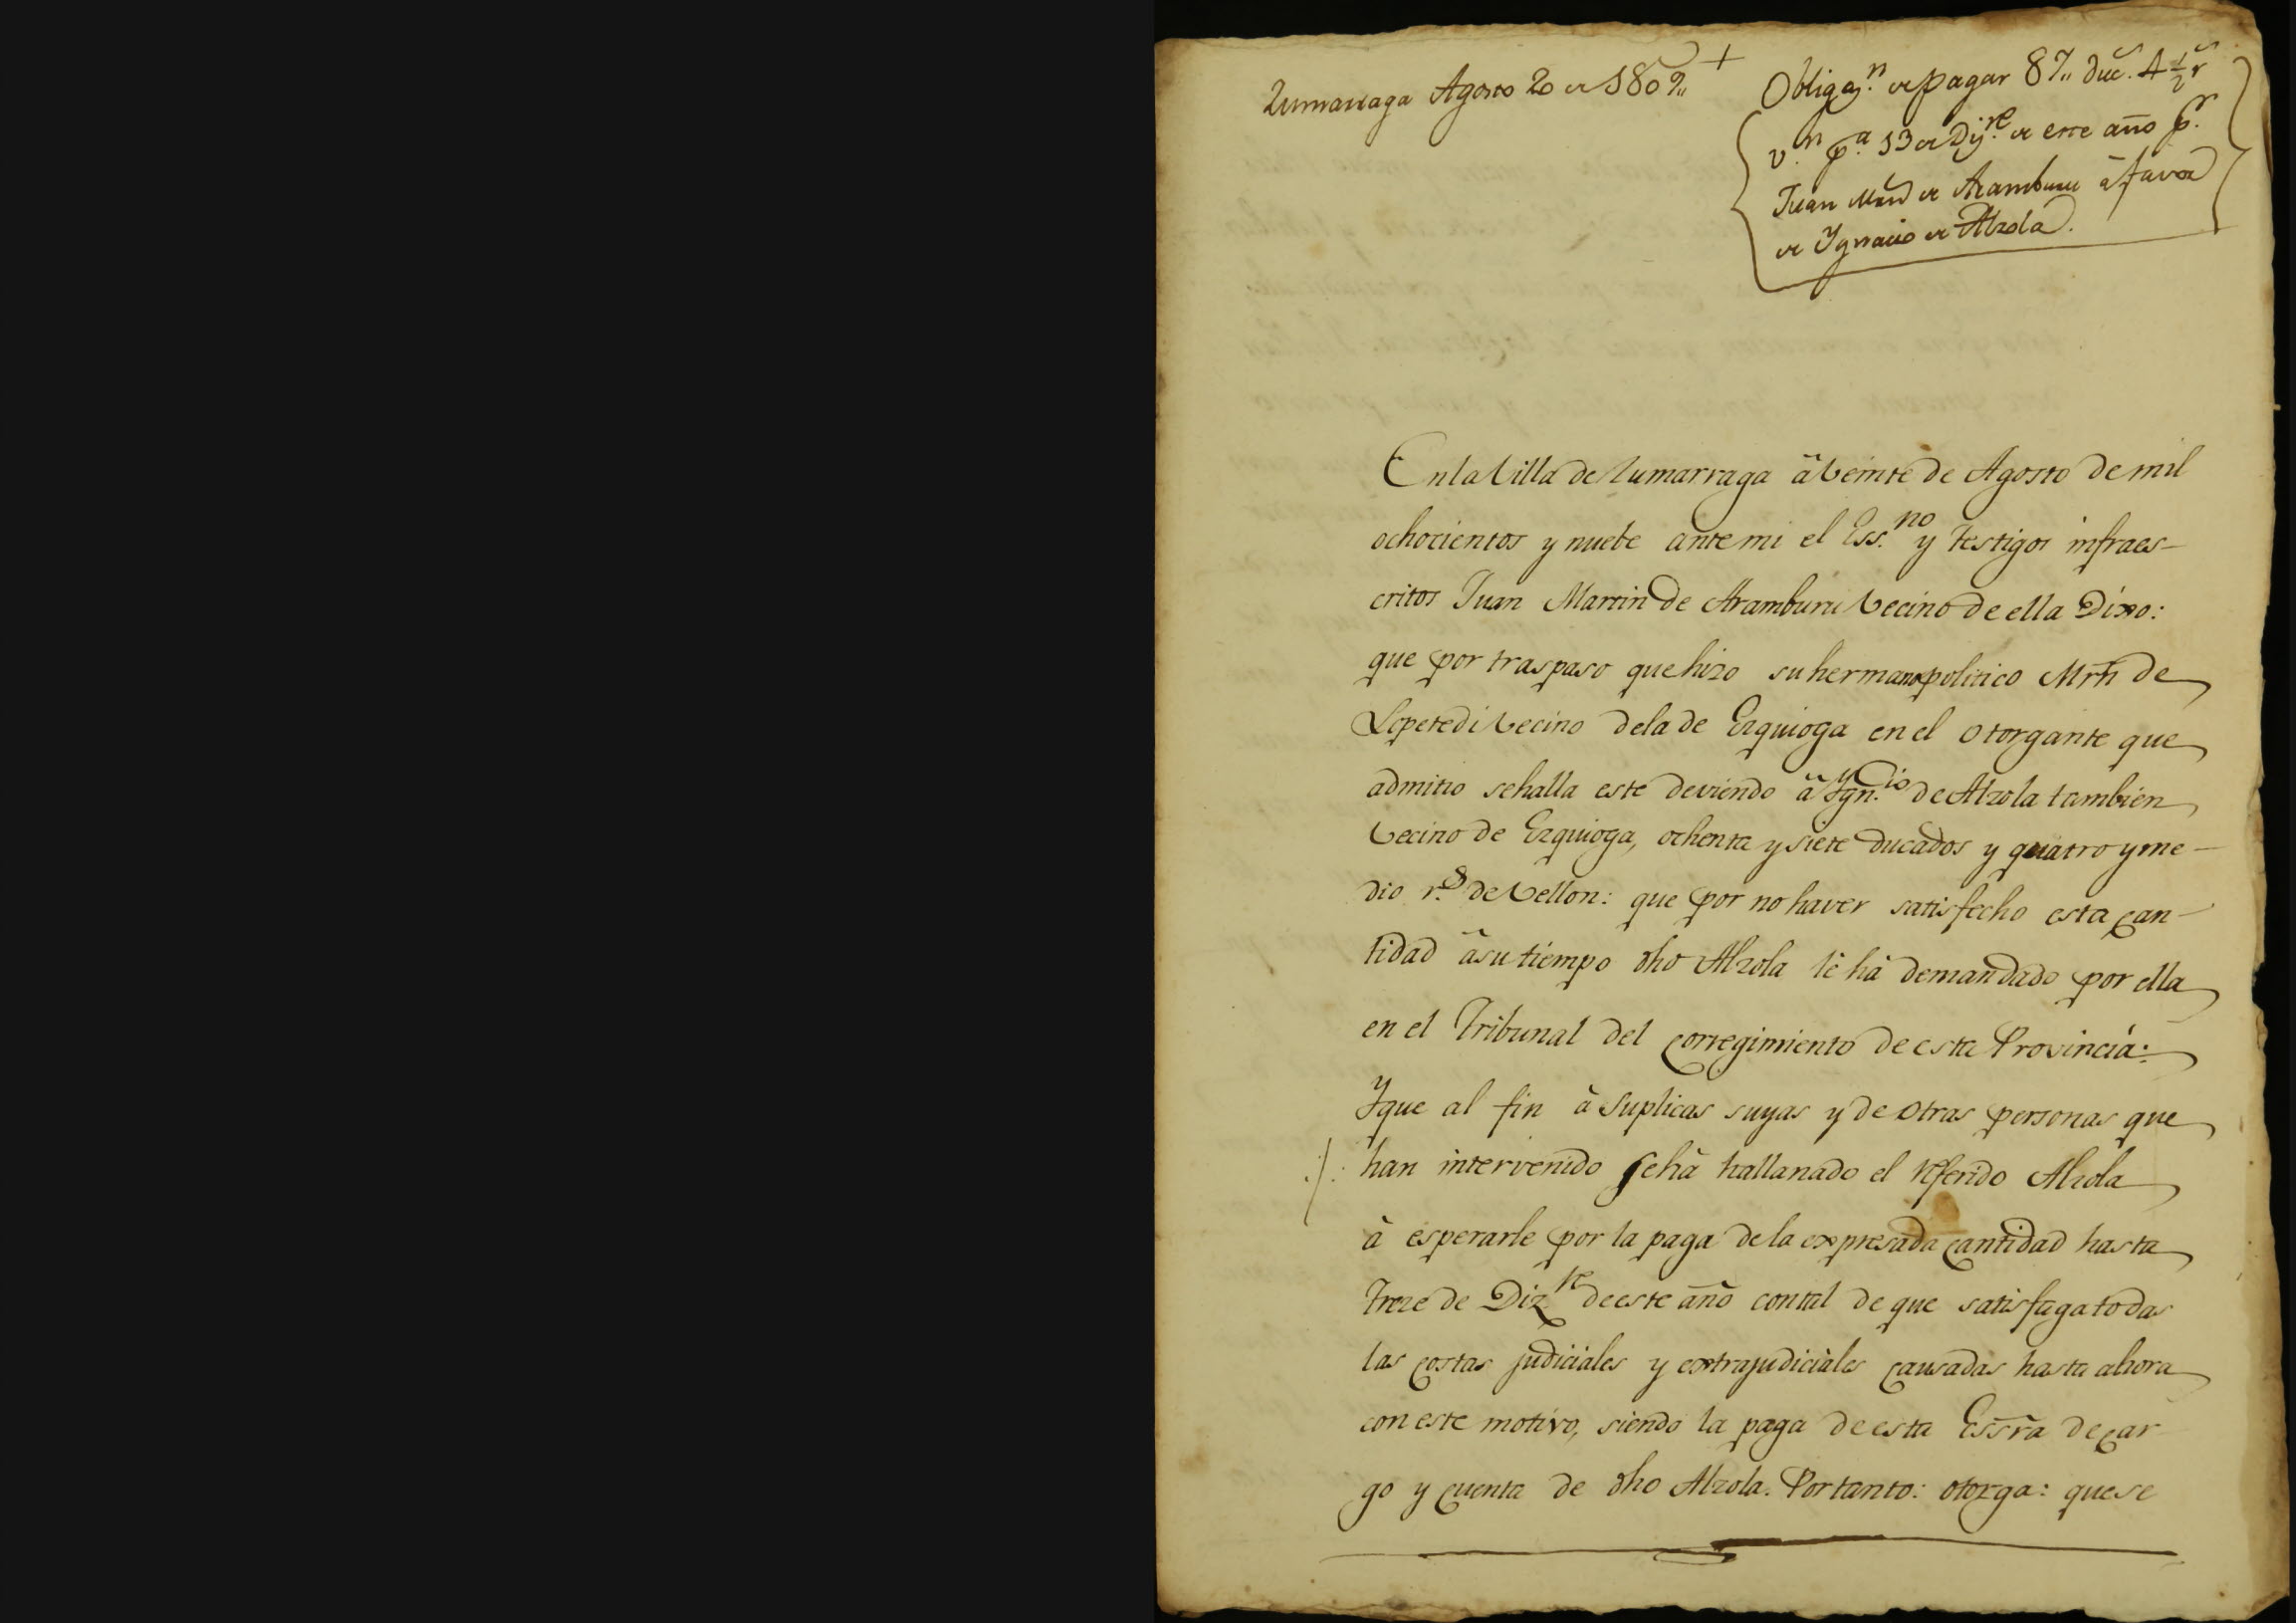 Zumarraga Agosto 20 de 1809,,
+
Obligaz.n de pagar 87,, duc.s 4 1/2 r.s
v.n p.a 13 de Diz.re de este año p.r
Juan Mrn de Aramburu â favor
de Ygnacio de Alzola.
En la Villa de Zumarraga â Veinte de Agosto de mil
ochocientos y nuebe ante mi el Ess.no y testigos infraes-
critos Juan Martin de Aramburu Vecino de ella Dixo:
que por traspaso que hizo su hermano politico Mrn de
Lopetedi Vecino de la de Ezquioga en el otorgante que
admitio se halla este deviendo â Ygn.cio de Alzola tambien
Vecino de Ezquioga, ochenta y siete ducados y quatro y me-
dio r.s de Vellon: que por no haver satisfecho esta can-
tidad â su tiempo dho Alzola le hà demandado por ella
en el Tribunal del corregimiento de esta Provincia:
Y que al fin à suplicas suyas y de otras personas que
han intervenido se hà hallanado el referido Alzola
à esperarle por la paga de la expresada cantidad hasta
treze de Diz.re de este año con tal de que satisfaga todas
las costas judiciales y extrajudiciales causadas hasta ahora
con este motivo, siendo la paga de esta Essra de car
go y cuenta de dho Alzola. Por tanto: otorga: que se